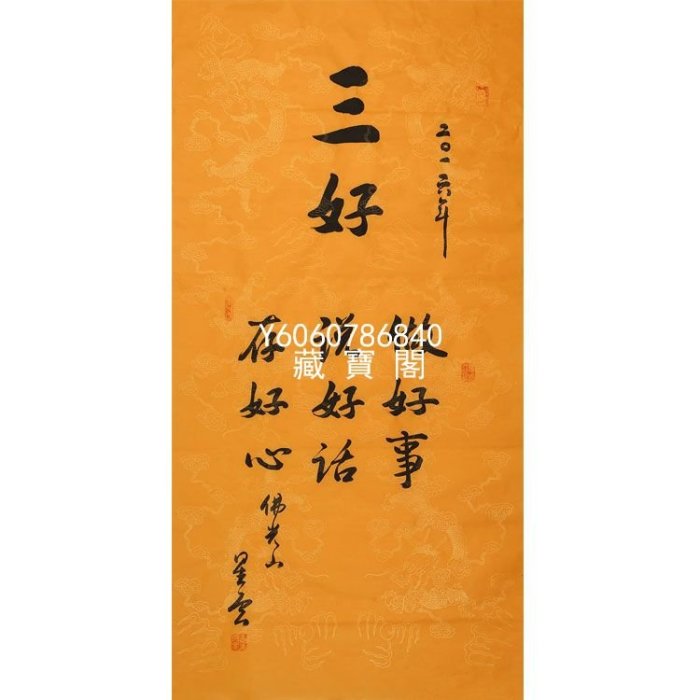 三好
二〇一六年
做好事
说好话
存好心
佛光山
星雲
Y6060786840
藏寶閣